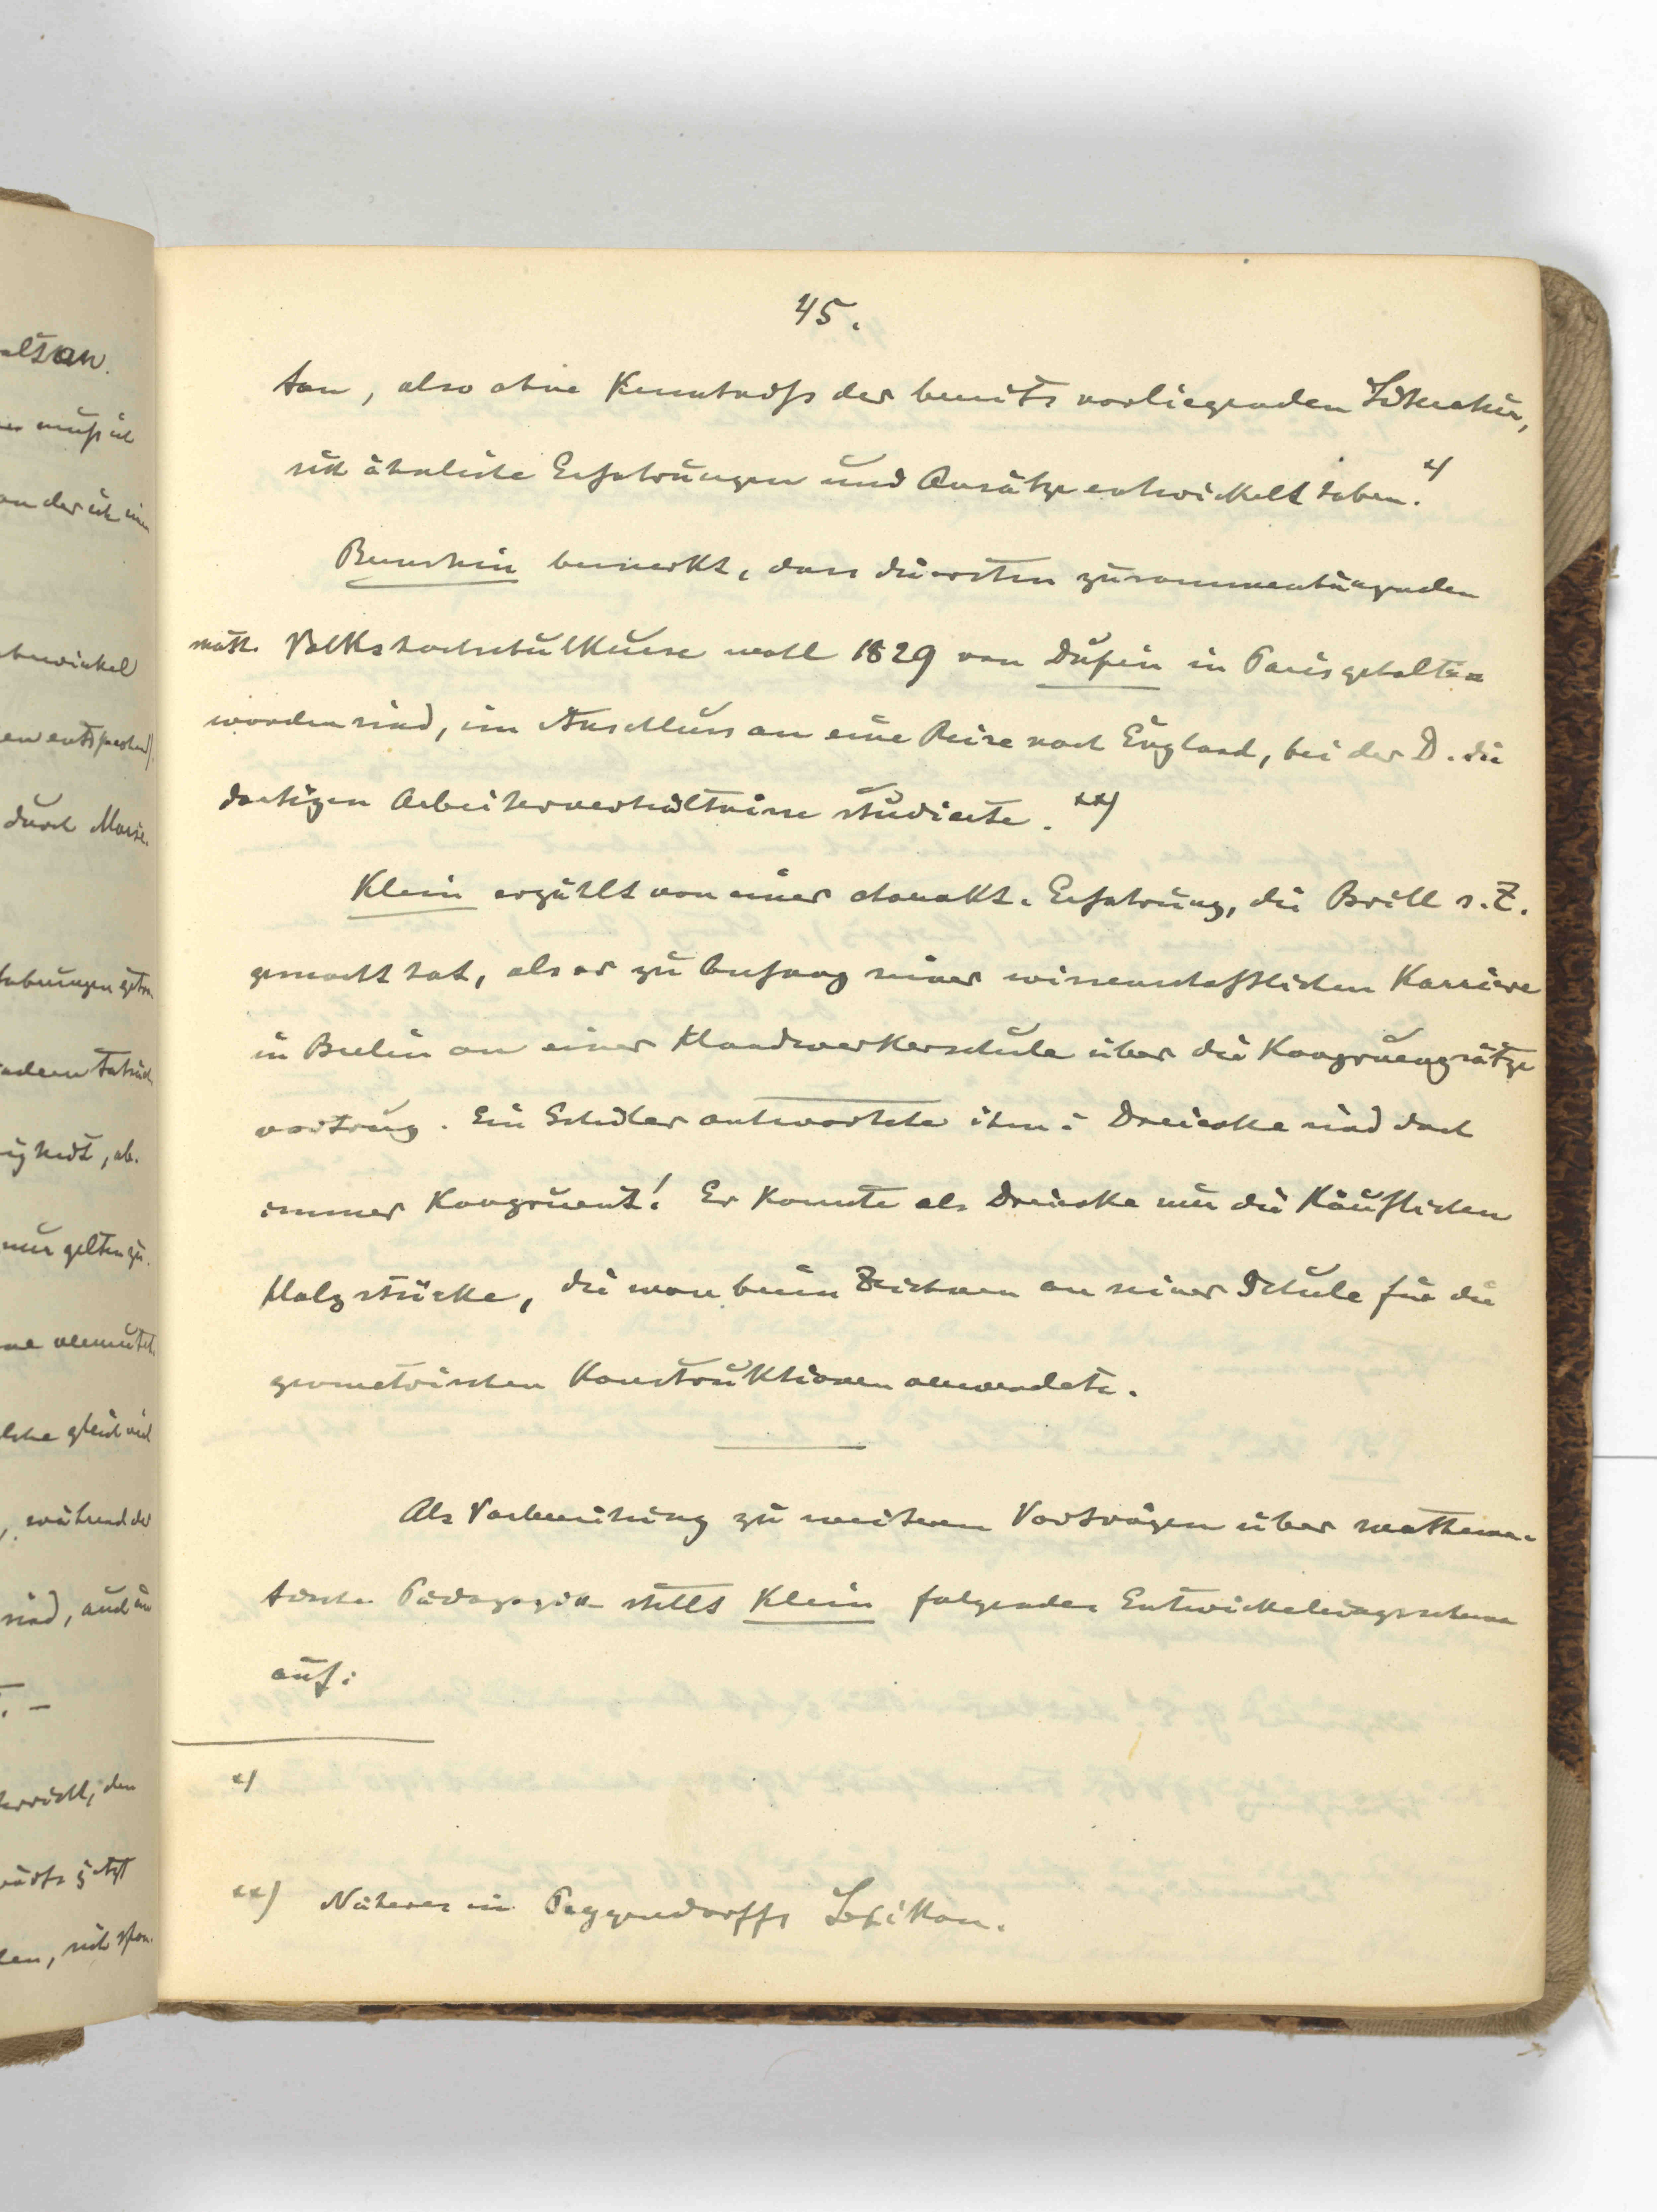 45.
tan, also ohne Kenntniss der bereits vorliegenden Literatur,
sich ähnliche Erfahrungen und Ansätze entwickelt haben. *)
Bernstein bemerkt, dass die ersten zusammenhängenden
math. Volkshochschulkurse wohl 1829 von Dupin in Paris gehalten
worden sind, im Anschluss an eine Reise nach England, bei der D. die
dortigen Arbeiterverhältnisse studierte. **)
Klein erzählt von einer charakt. Erfahrung, die Brill s. Z.
gemacht hat, als er zu Anfang seiner wissenschaftlichen Karriere
in Berlin an einer Handwerkerschule über die Kongruenzsätze
vortrug. Ein Schüler antwortete ihm: Dreiecke sind doch
immer kongruent! Er kannte als Dreiecke nur die käuflichen
Holzstücke, die man beim Zeichnen an seiner Schule für die
geometrischen Konstruktionen verwendete.
Als Vorbereitung zu weiteren Vorträgen über mathema-
tische Pädagogik stellt Klein folgendes Entwickelungsschema
auf:
*)
**) Näheres in Poggendorffs Lexikon.